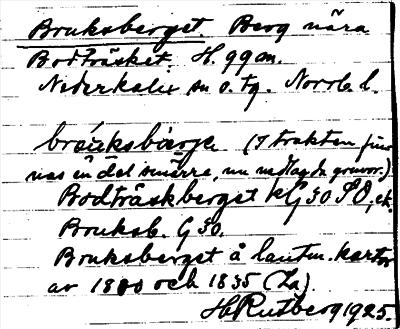 Bruksberget. Berg nära
Bodträsket. H. 99 m.
Nederkalix sn o. tg. Norrb. l.
bråuksbärje (I trakten fin-
nas en del smärre, nu nedlagda gruvor.)
Bodträskberget KG 30 SO, ek.
Bruksb. G 30.
Bruksberget å lantm. kartor
av 1800 och 1835 (La).
H Rutberg 1925.